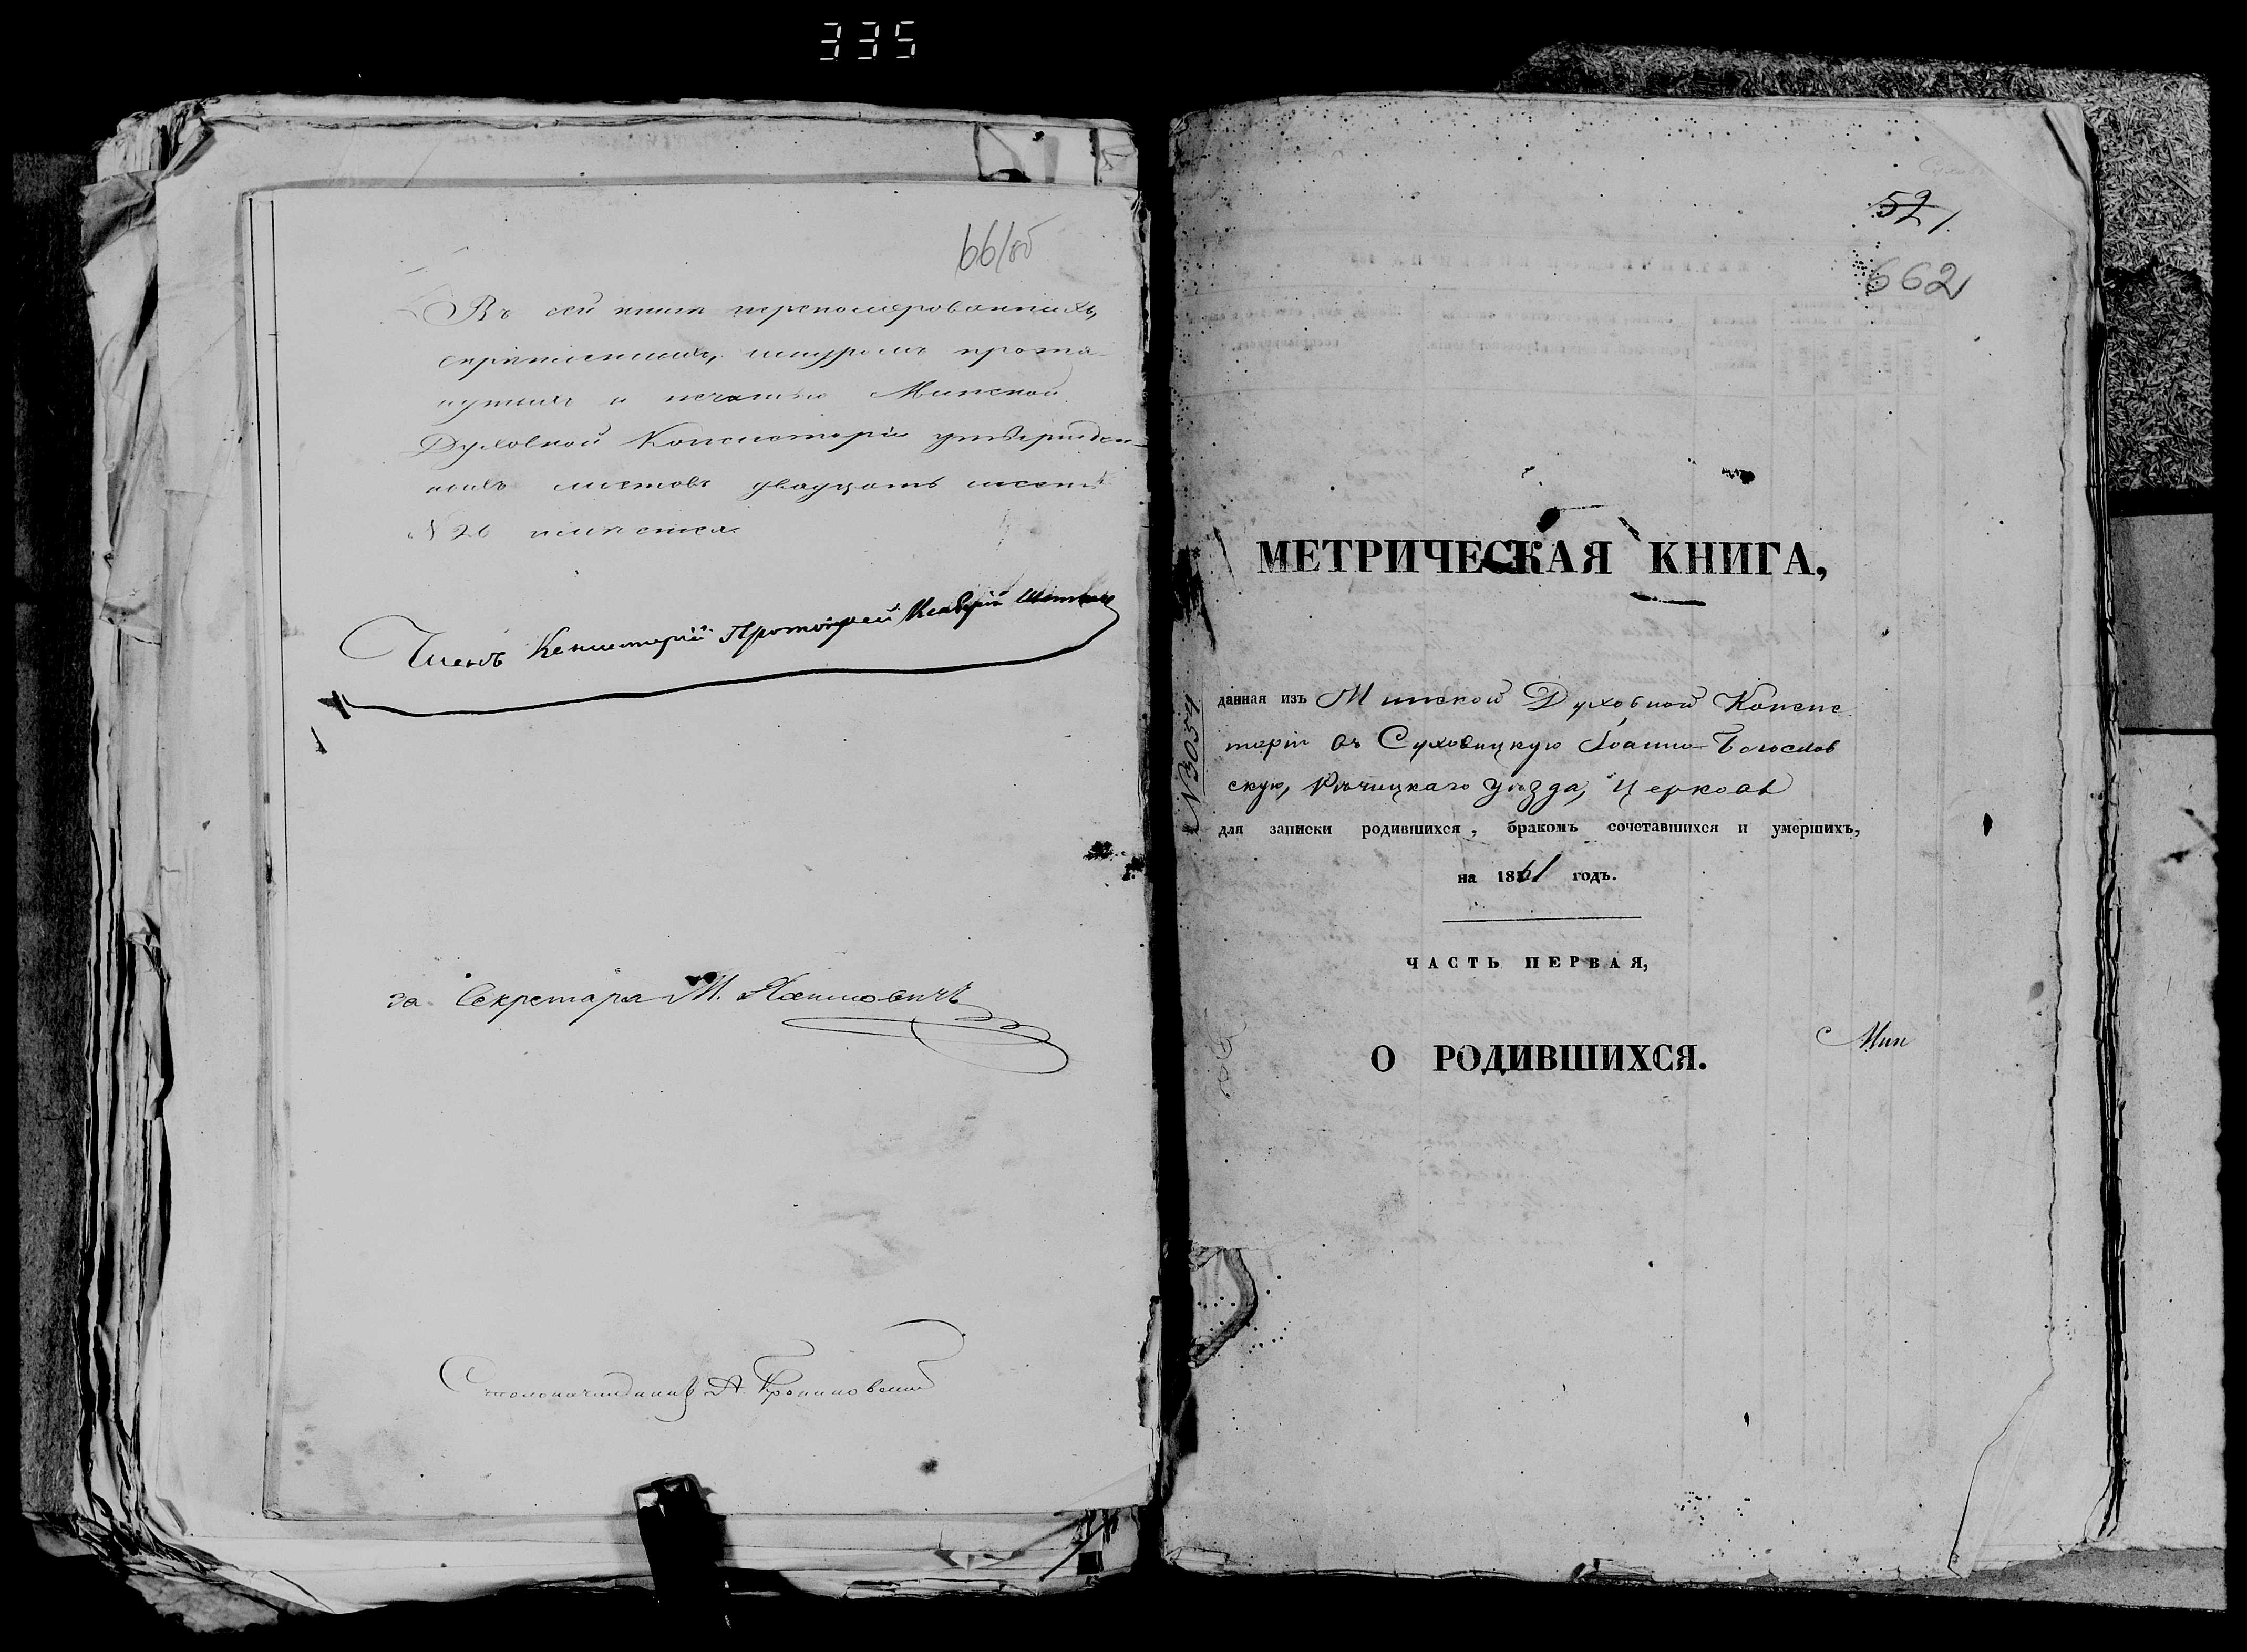 335
66/об
Въ сей книгѣ переномерованныхъ,
скрѣпленныхъ, шнуромъ протя-
нутыхъ и печатью Минской
Духовной Консисторіи утвержден-
ныхъ листовъ двадцать шесть
№ 26 имѣется.
Членъ Консисторіи Протоіерей
за Секретаря М.
Столоначальникъ А.
521
662
МЕТРИЧЕСКАЯ КНИГА,
данная изъ Минской Духовной Консис
торіи въ Суховицкую Іоанно-Богослов
скую, Рѣчицкаго уѣзда, Церковь
для записки родившихся, бракомъ сочетавшихся и умершихъ,
на 1861 годъ.
ЧАСТЬ ПЕРВАЯ,
О РОДИВШИХСЯ.
Мин
№ 3054